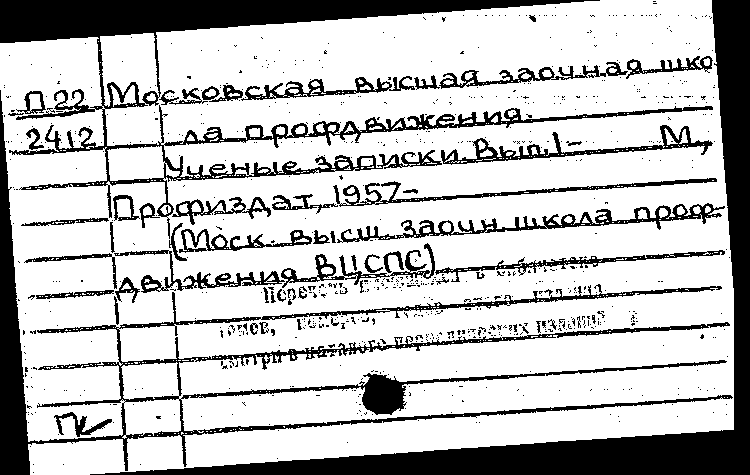 П22 Московская высшая заочная шко
2412 ла профдвижения.
Ученые записки. Вып. 1- М.,
Профиздат, 1957-
(Моск. высш. заочн. школа проф-
движения ВЦСПС)
Перечень в библиотеке
томов, номеров, годов этого издания
смотри в каталоге периодических изданий